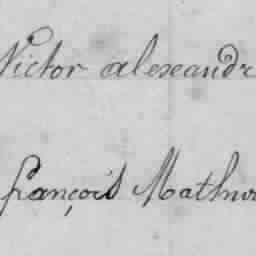 Victor alexandr
françois Mathur